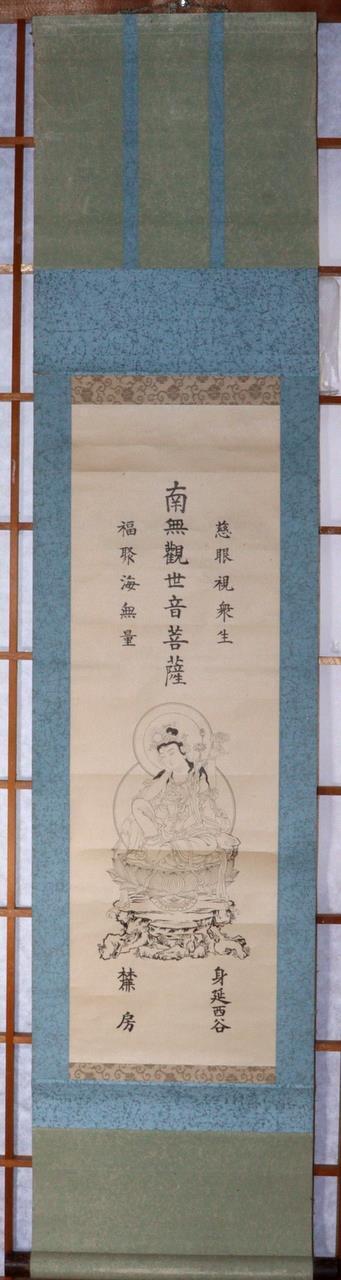 慈眼視衆生
南無觀世音菩薩
福聚海無量
身延西谷
麓房